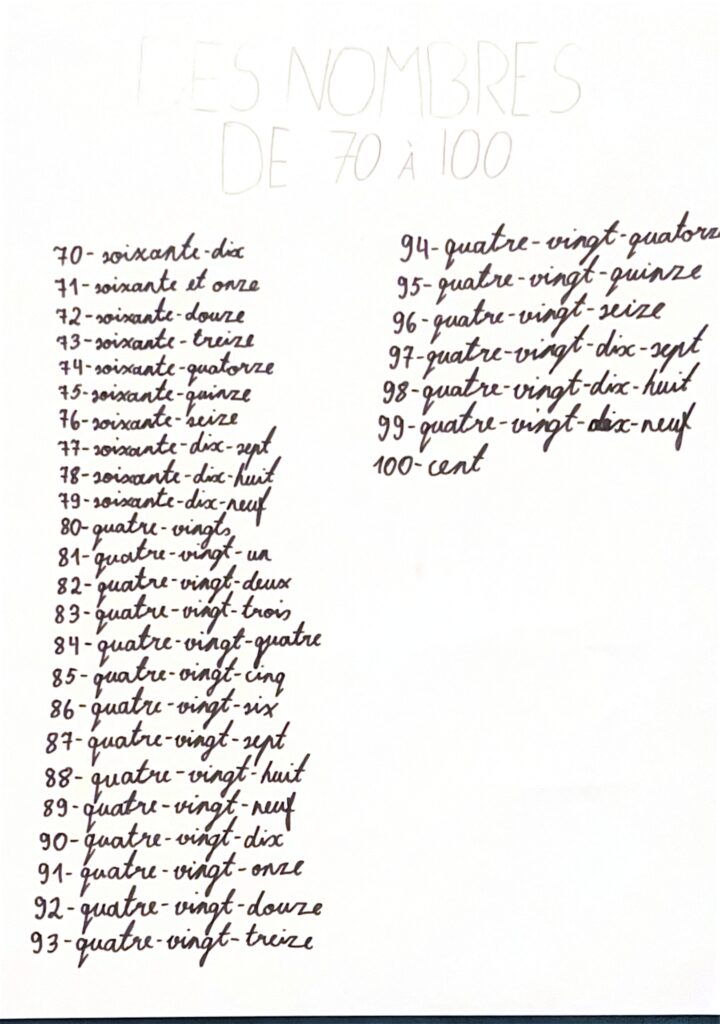 DES NOMBRES
DE 70 À 100
70- soixante-dix
71- soixante et onze
72- soixante-douze
73- soixante-treize
74- soixante-quatorze
75- soixante-quinze
76- soixante-seize
77- soixante-dix-sept
78- soixante-dix-huit
79- soixante-dix-neuf
80- quatre-vingts
81- quatre-vingt-un
82- quatre-vingt-deux
83- quatre-vingt-trois
84- quatre-vingt-quatre
85- quatre-vingt-cinq
86- quatre-vingt-six
87- quatre-vingt-sept
88- quatre-vingt-huit
89- quatre-vingt-neuf
90- quatre-vingt-dix
91- quatre-vingt-onze
92- quatre-vingt-douze
93- quatre-vingt-treize
94- quatre-vingt-quatorz
95- quatre-vingt-quinze
96- quatre-vingt-seize
97- quatre-vingt-dix-sept
98- quatre-vingt-dix-huit
99- quatre-vingt-dix-neuf
100- cent